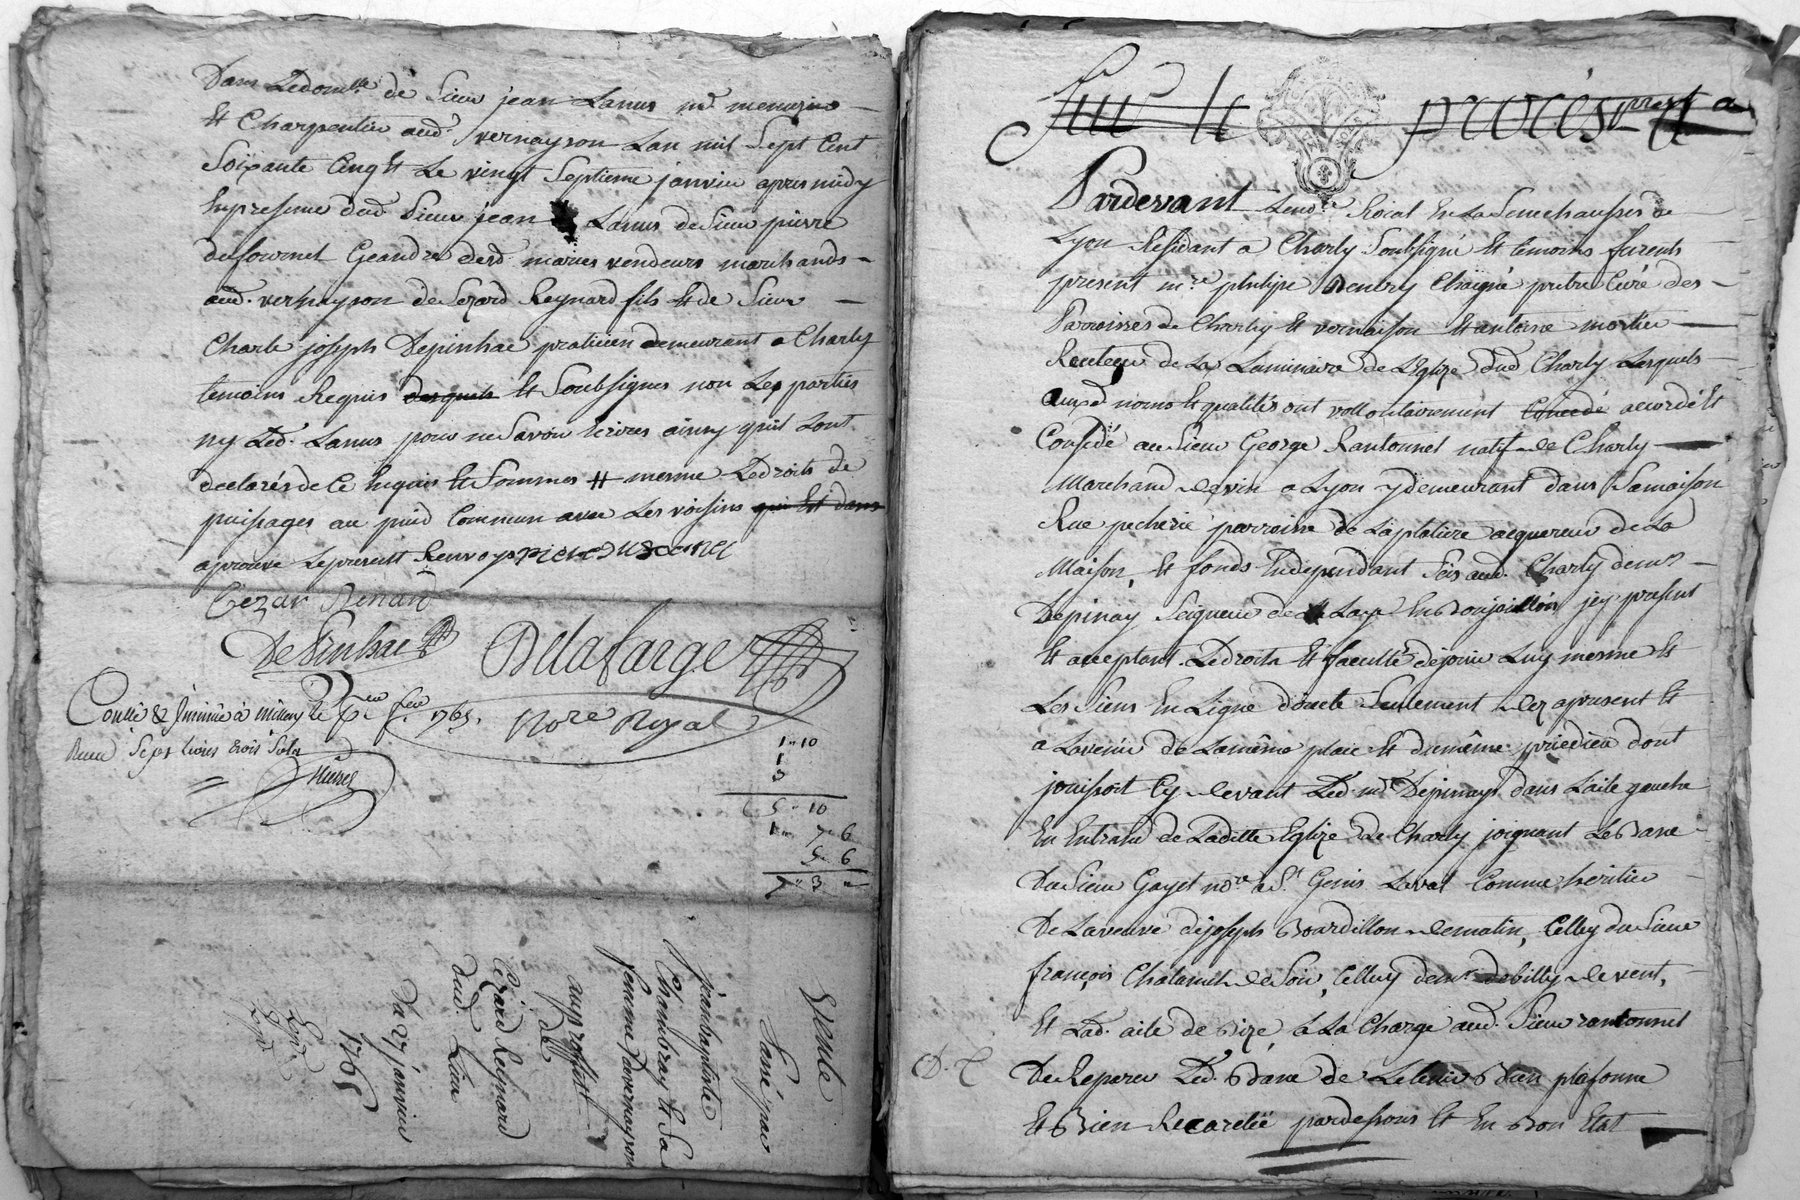 Dans Ledomlle de Sieur jean Lanus md menuzier
Et Charpentier aud. vernayson Lan mil Sept Cent
Soixante Cinq Et Le vingt Septieme janvier apres midy
En presence dud. Sieur jean Lanus de Sieur pierre
dufournet Geandre desd. maries vendeurs marchands
aud. vernayson de Sezard Reynard fils Et de Sieur
Charle joseph Depinhac praticien demeurant a Charly
temoins Requis desquels Et Soubsignes non Les parties
ny Led. Lanus pour ne Savoir Ecrire ainsy quil Lont
declarés de Ce Enquis Et Sommes # mesme Ledroits de
puisages au puid Commun avec Les voisins qui Est dans
aprouve Lepresent Renvoy
Cezar Renard
DePinhac Delafarge
Nore Royal
Conlle & Jnsinué à millery le fer 1765.
Receu Sept livres trois Sols
1 " 10
1
3
5 " 10
1 " 7 " 6
5 " 6
7 " 3 "
Vente
Passé par
jeanbaptiste
Chambray Et Sa
femme davernayson
auproffit
De
Cezard Reynard
dud. Lieu
Du 27 janvier
1765
Sur le procés
Pardevant Lenore Roial En La Senechaussée de
Lyon Residant a Charly Soubsigné Et temoins furents
present mre philipe Denery Chaigné pretre Curé des
Parroisses de Charly Et vernaison Et antoine mortier
Recteur de La Luminaire de LEglize dud Charly Lesquels
auxd noms Et qualités ont vollontairement Concedé accordé Et
Concedé au Sieur George Rantonnet natif de Charly
Marchand devin a Lyon ydemeurant dans Samaison
Rue pecherie parroisse de Laplatiere acquereur de La
Maison, Et fonds Endependant Sis aud. Charly demr
Depinay Seigneur de Laye En Boujollois jcy present
Et acceptant Ledroits Et faculté dejouir Luy mesme Et
Les Siens En Ligne directe Seulement dez apresent Et
a Lavenir de Lamême place Et dumême priedieu dont
jouissoit Cy devant Led. mr Depinay dans Laile gauche
En Entrand de Laditte Eglize de Charly joignant Le Banc
Du Sieur Gayet nore a St Genis Laval Comme heritier
De Laveuve dejoseph Bourdillon dematin, Celluy du Sieur
françois Chalamel de Soir, Celluy demr debilly de vent,
Et Lad. aile de Bize, a La Charge aud. Sieur rantonnet
De Reparer Led. Banc de Le tenir Bien plafonne
Et Bien Recarellé pardessous Et En Bon Etat